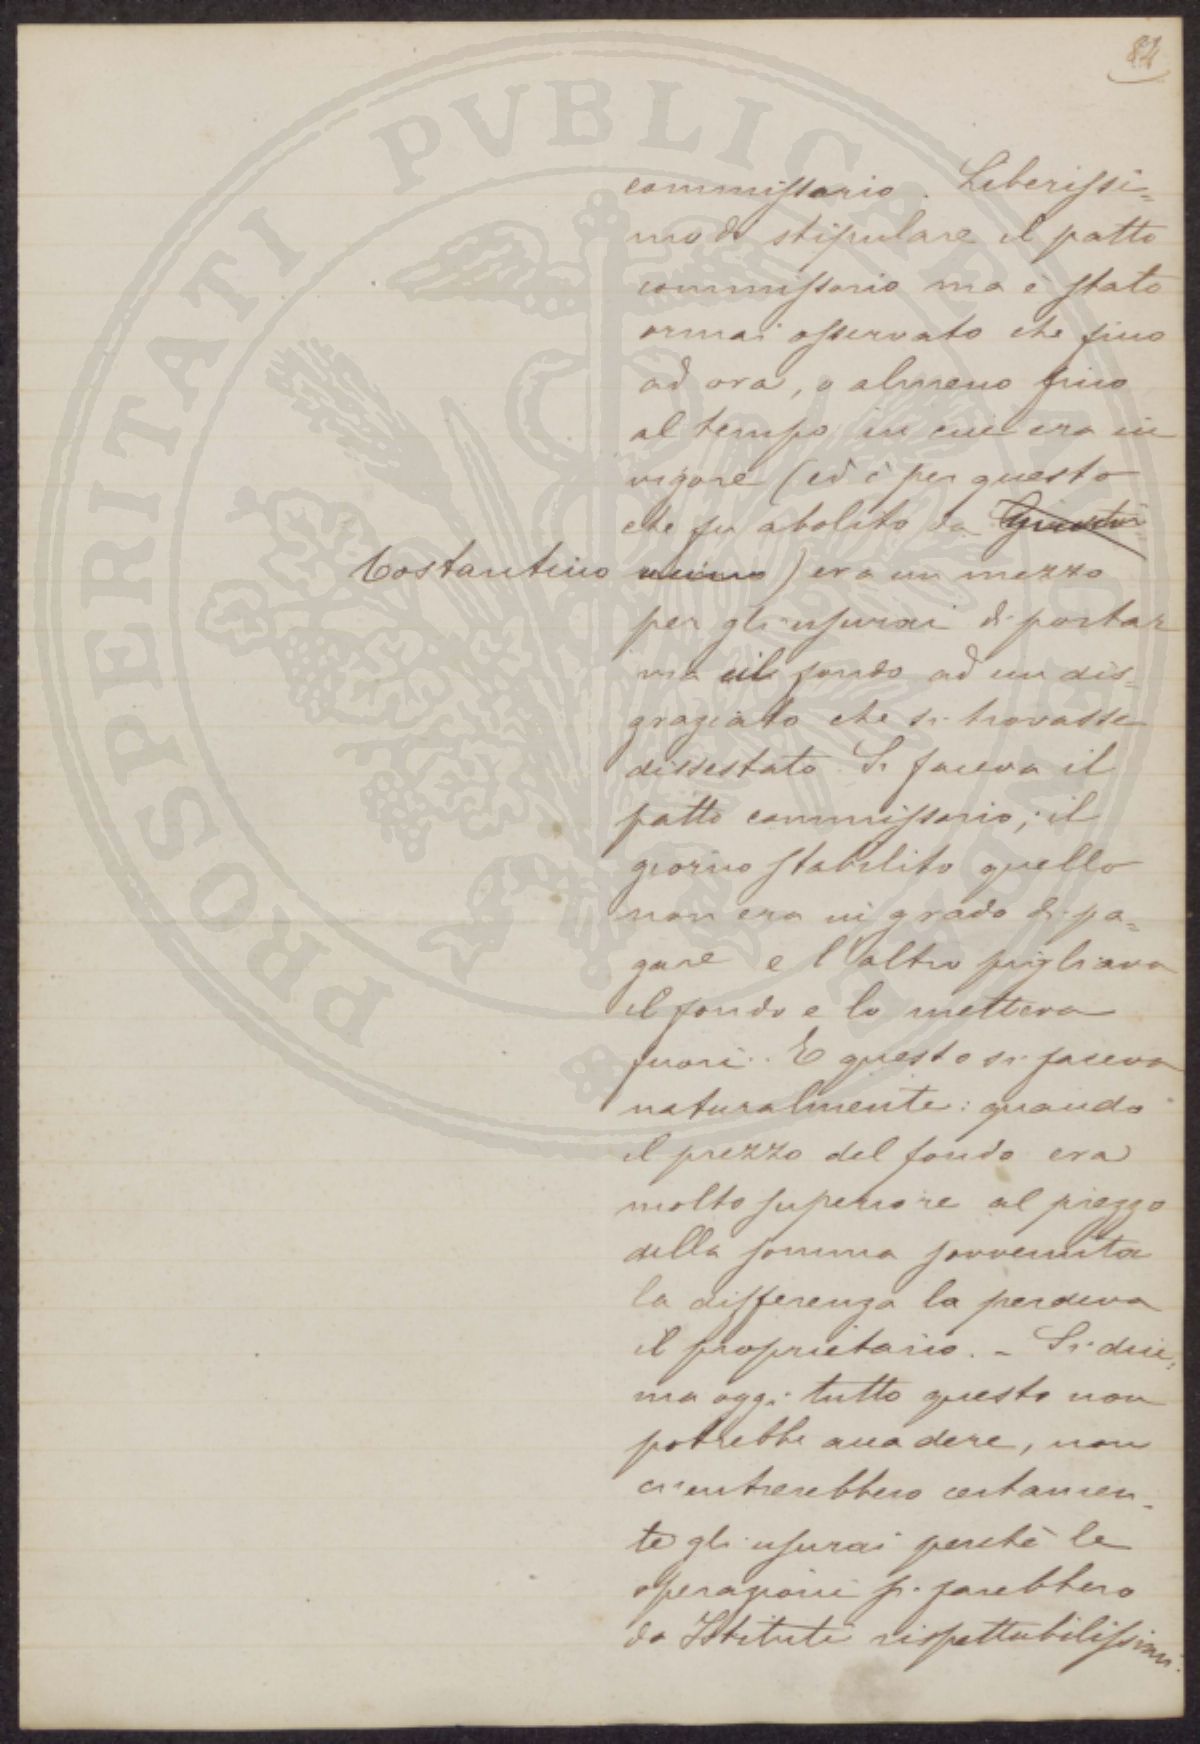 84
PROSPERITATI PVBLICAE AVGENDAE
commissario. Liberissi=
mo di stipulare il patto
commissorio ma è stato
ormai osservato che fino
ad ora, o almeno fino
al tempo in cui era in
vigore (ed è per questo
che fu abolito da Giusti
Costantino niano) era un mezzo
per gli usurai di portar
via il fondo ad un dis=
graziato che si trovasse
dissestato. Si faceva il
patto commissorio; il
giorno stabilito quello
non era in grado di pa=
gare e l'altro pigliava
il fondo e lo metteva
fuori. E questo si faceva
naturalmente: quando
il prezzo del fondo era
molto superiore al prezzo
della somma sovvenuta
la differenza la perdeva
il proprietario. - Si dice,
ma oggi tutto questo non
potrebbe accadere, non
ci entrerebbero certamen=
te gli usurai perchè le
operazioni si farebbero
da Istituti rispettabilissimi.